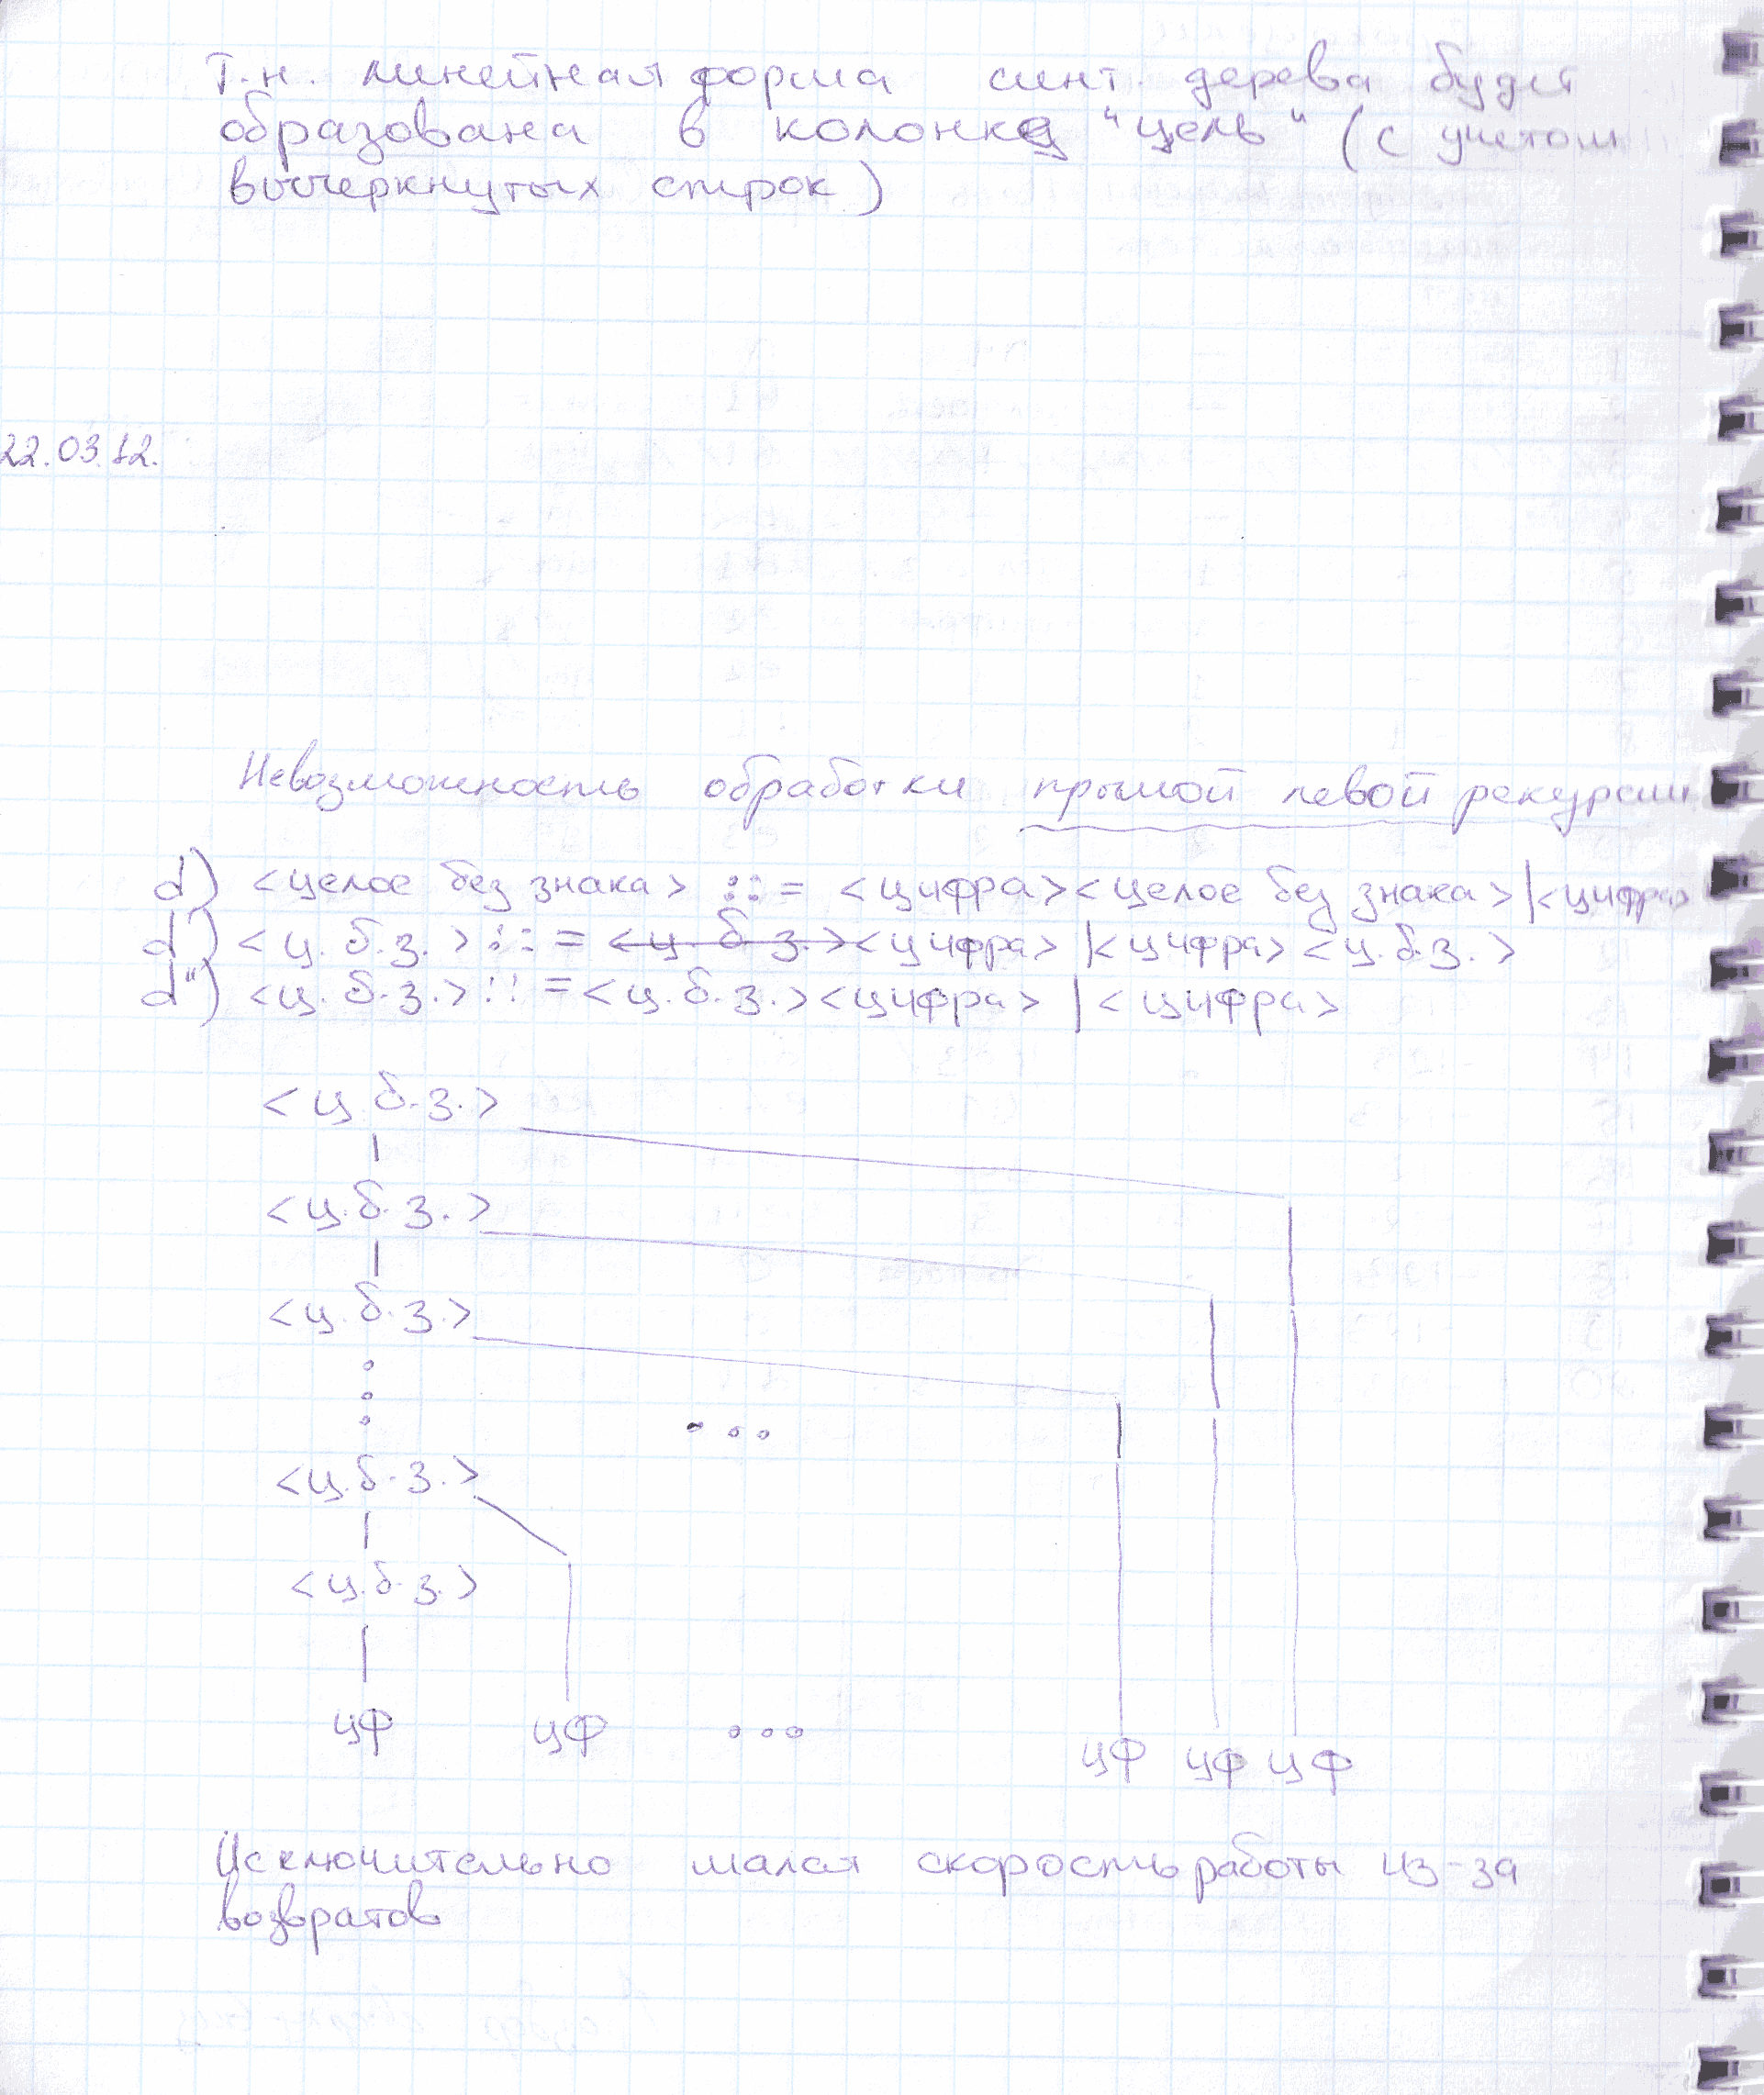 Т.н. линейная форма синт. дерева будет
образована в колонке "цель" (с учетом
вычеркнутых строк)
22.03.12.
Невозможность обработки прямой левой рекурсии
d) <целое без знака> ::= <цифра><целое без знака>|<цифра>
d') <ц.б.з.> ::= <ц.б.з.><цифра> |<цифра> <ц.б.з.>
d") <ц.б.з.> ::= <ц.б.з.><цифра> | <цифра>
<ц.б.з.>
<ц.б.з.>
<ц.б.з.>
...
<ц.б.з.>
<ц.б.з.>
цф цф ... цф цф цф
Исключительно малая скорость работы из-за
возвратов